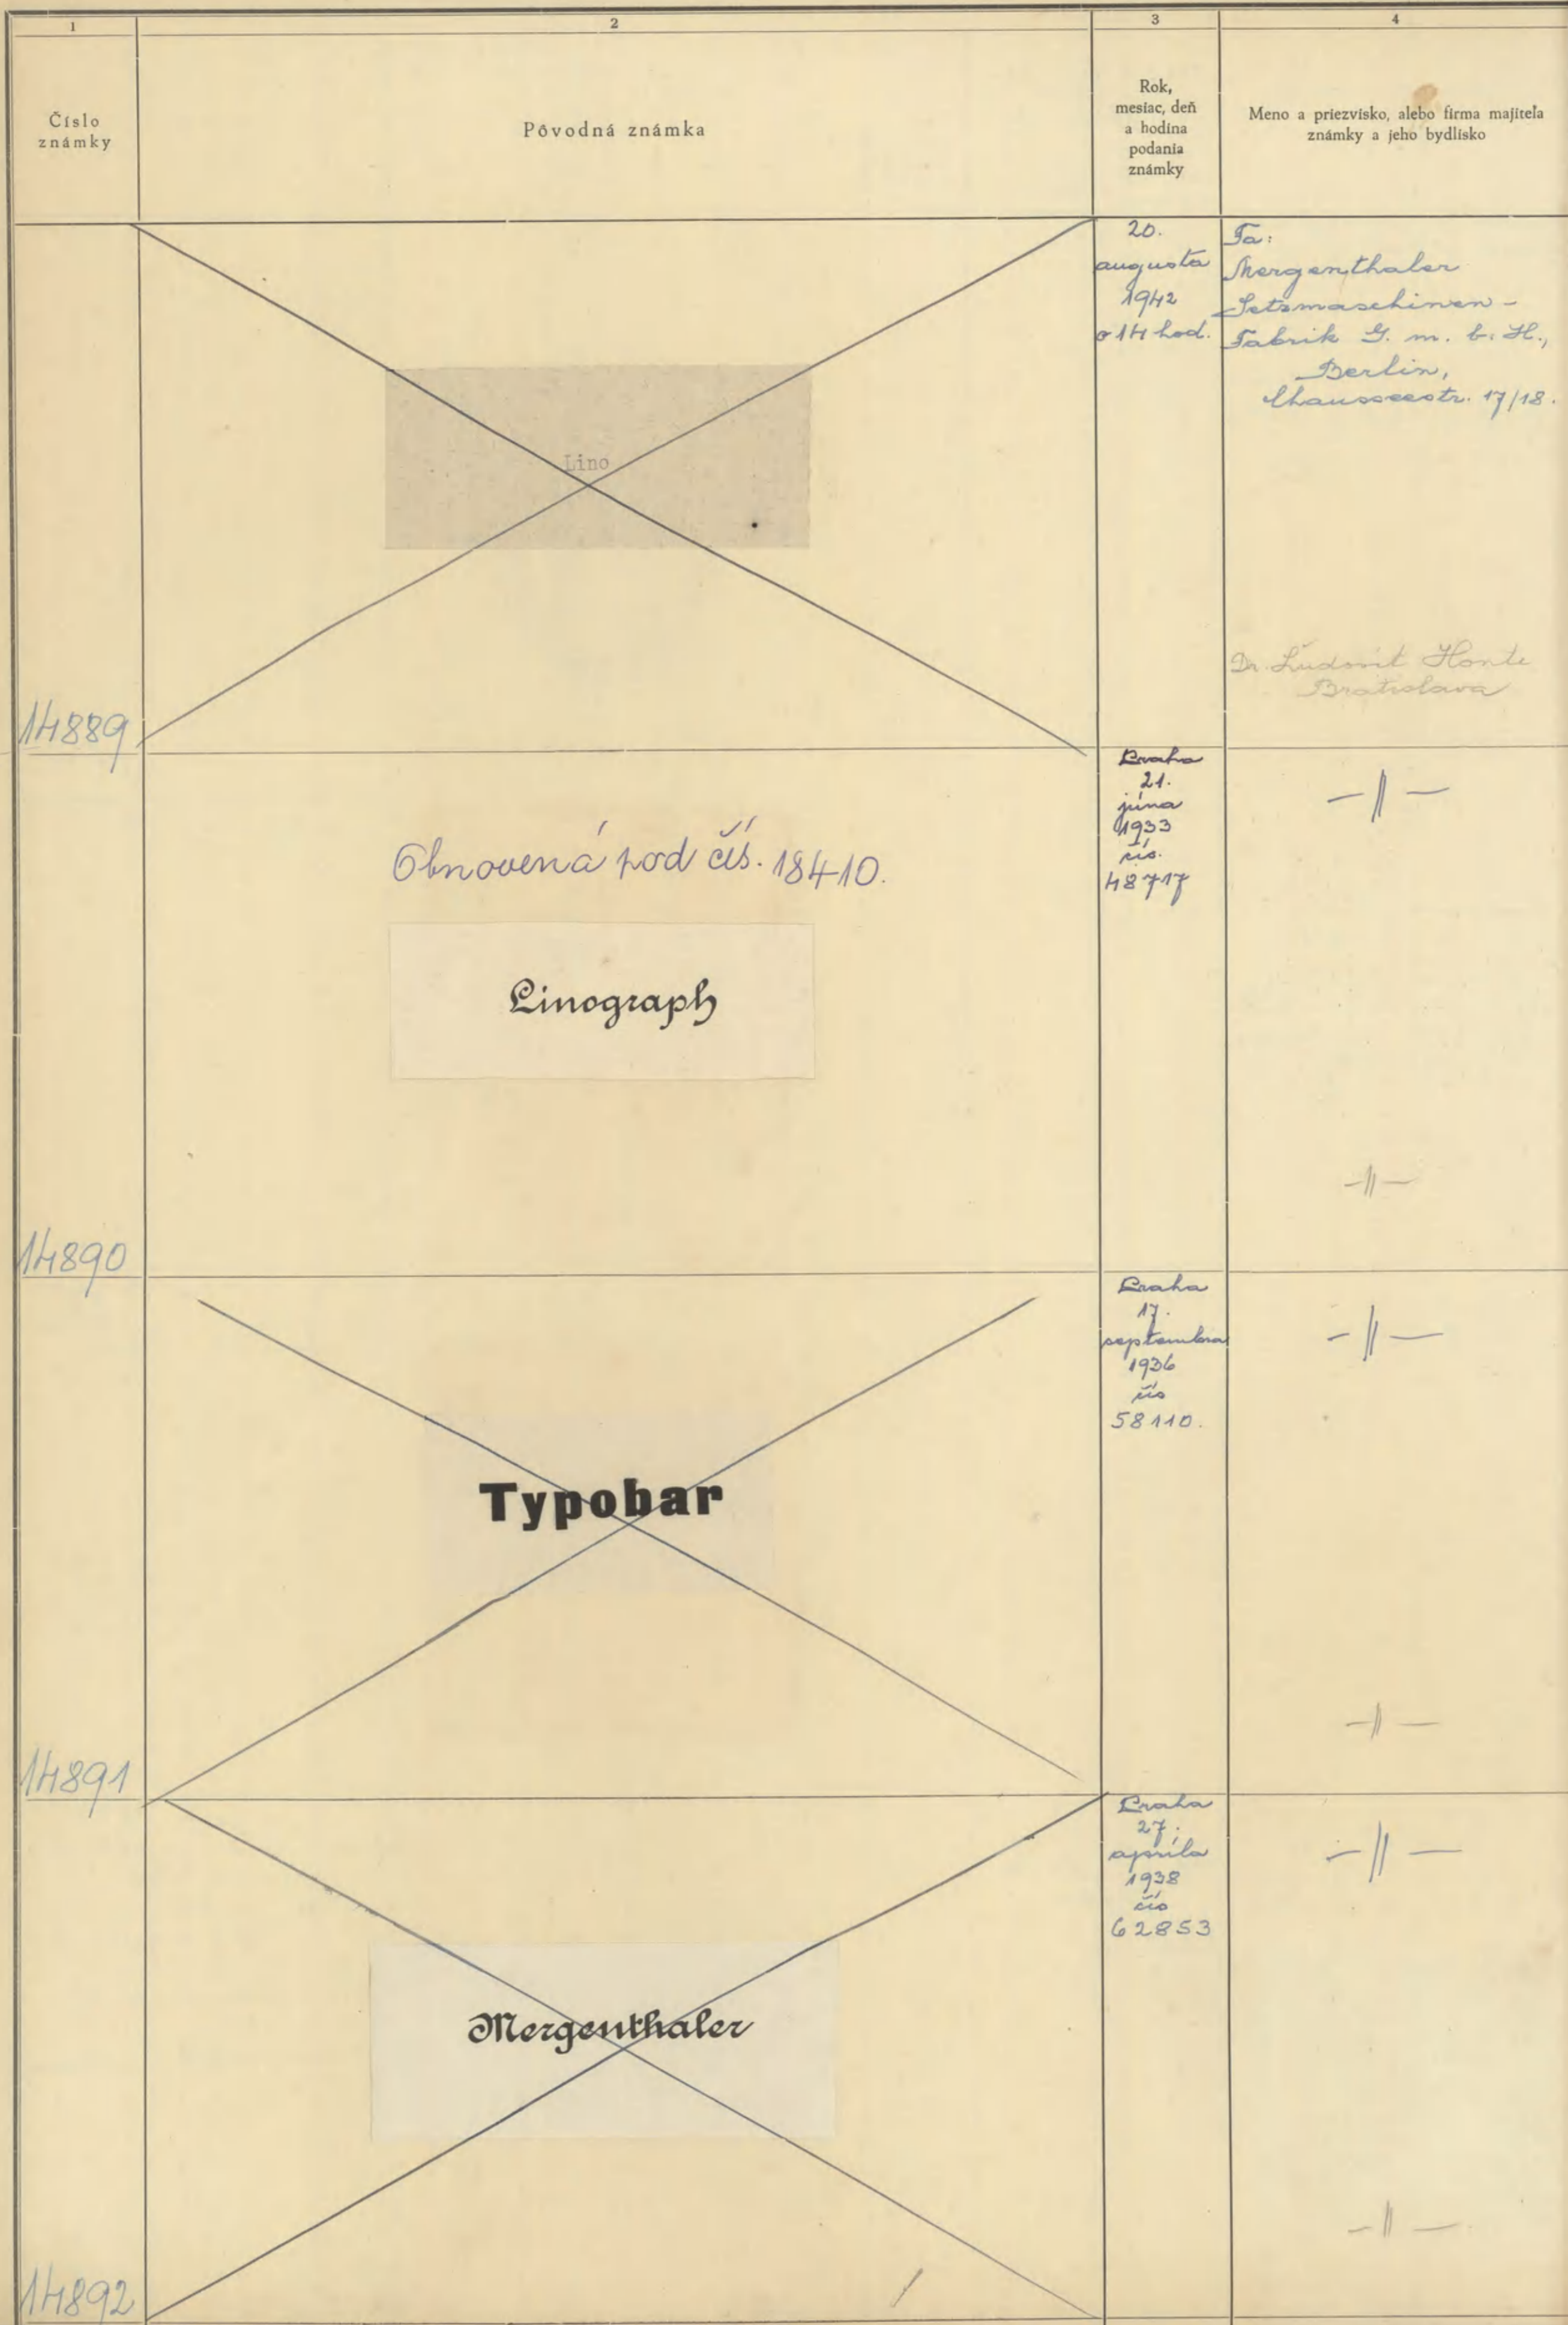 1
2
3
4
Číslo
známky
Pôvodná známka
Rok,
mesiac, deň
a hodina
podania
známky
Meno a priezvisko, alebo firma majiteľa
známky a jeho bydlisko
14889
Lino
20.
augusta
1942
o 14 hod.
Fa:
Mergenthaler
Setzmaschinen-
Fabrik G. m. b. H.,
Berlin,
Chausseestr. 17/18.
Dr. Ľudovít Honte
Bratislava
14890
Obnovená pod čís. 18410.
Linograph
Praha
21.
júna
1933
čís.
48717
-||-
-||-
14891
Typobar
Praha
17.
septembra
1936
čís
58110.
-||-
-||-
14892
Mergenthaler
Praha
27.
apríla
1938
čís
62853
-||-
-||-